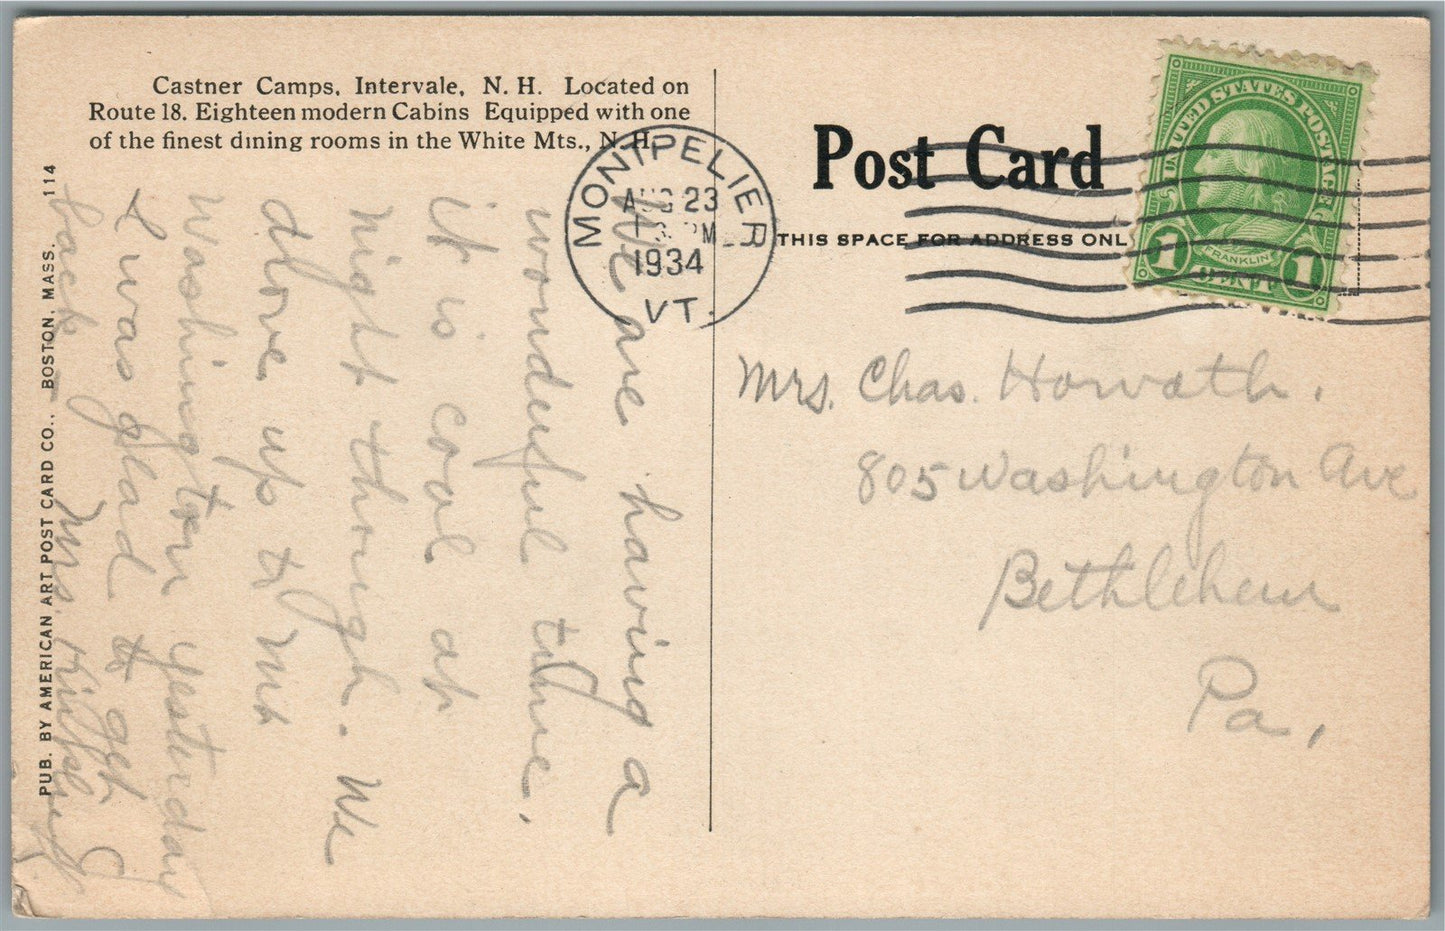 Castner Camps, Intervale, N. H. Located on
Route 18. Eighteen modern Cabins Equipped with one
of the finest dining rooms in the White Mts., N. H.
PUB. BY AMERICAN ART POST CARD CO., BOSTON, MASS. 114
We are having a
wonderful time.
it is cool at
night though. We
drove up to Mt
Washington yesterday
I was glad to get
back - Mrs.
MONTPELIER
AUG 23
PM
1934
VT.
Post Card
THIS SPACE FOR ADDRESS ONL
UNITED STATES POSTAGE
FRANKLIN
1 CENT 1
Mrs. Chas. Horvath.
805 Washington Ave
Bethlehem
Pa,